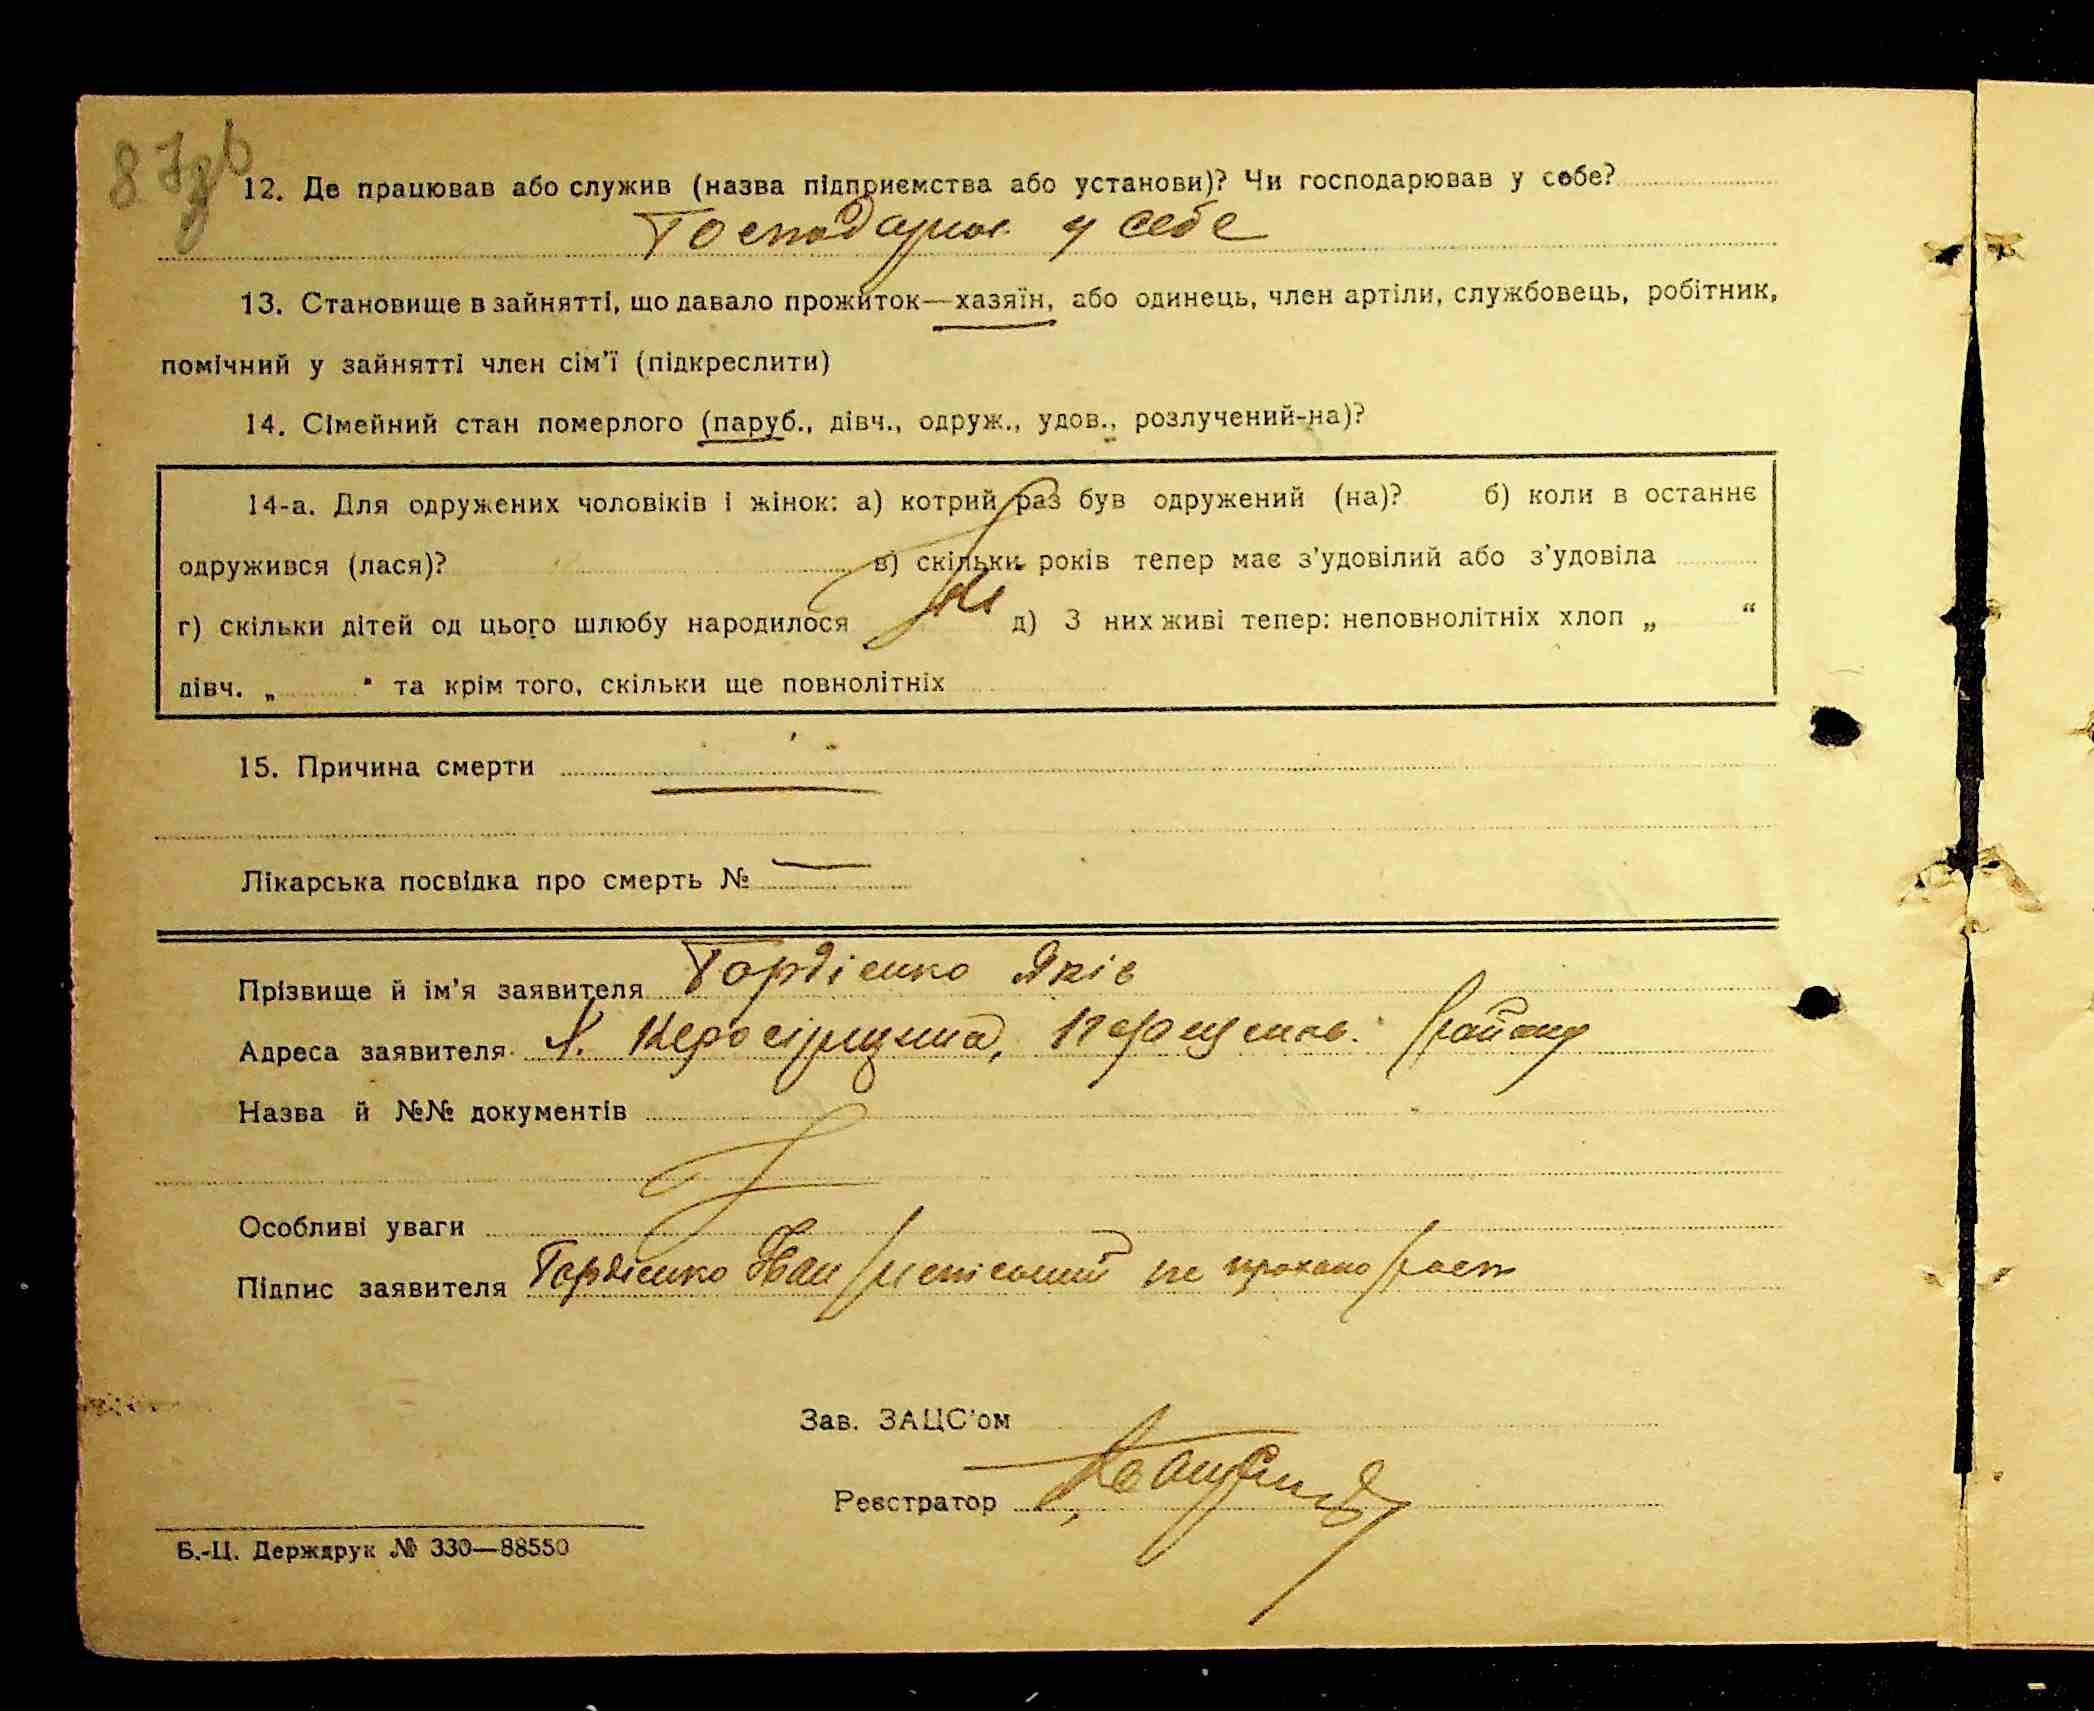 87
12. Де працював або служив (назва підприємства або установи)? Чи господарював у себе?
Господарює у себе
13. Становище в зайнятті, що давало прожиток—хазяїн, або одинець, член артіли, службовець, робітник,
помічний у зайнятті член сім'ї (підкреслити)
14. Сімейний стан померлого (паруб., дівч., одруж., удов., розлучений-на)?
14-а. Для одружених чоловіків і жінок: а) котрий раз був одружений (на)? б) коли в останнє
одружився (лася)? в) скільки років тепер має з'удовілий або з'удовіла
г) скільки дітей од цього шлюбу народилося д) З них живі тепер: неповнолітніх хлоп „ “
дівч. „ “ та крім того, скільки ще повнолітніх
15. Причина смерти
Лікарська посвідка про смерть №
Прізвище й ім'я заявителя Гордієнко Яків
Адреса заявителя района
Назва й №№ документів
Особливі уваги
Підпис заявителя Гордієнко Іван
Зав. ЗАЦС'ом
Реєстратор
Б.-Ц. Держдрук № 330—88550